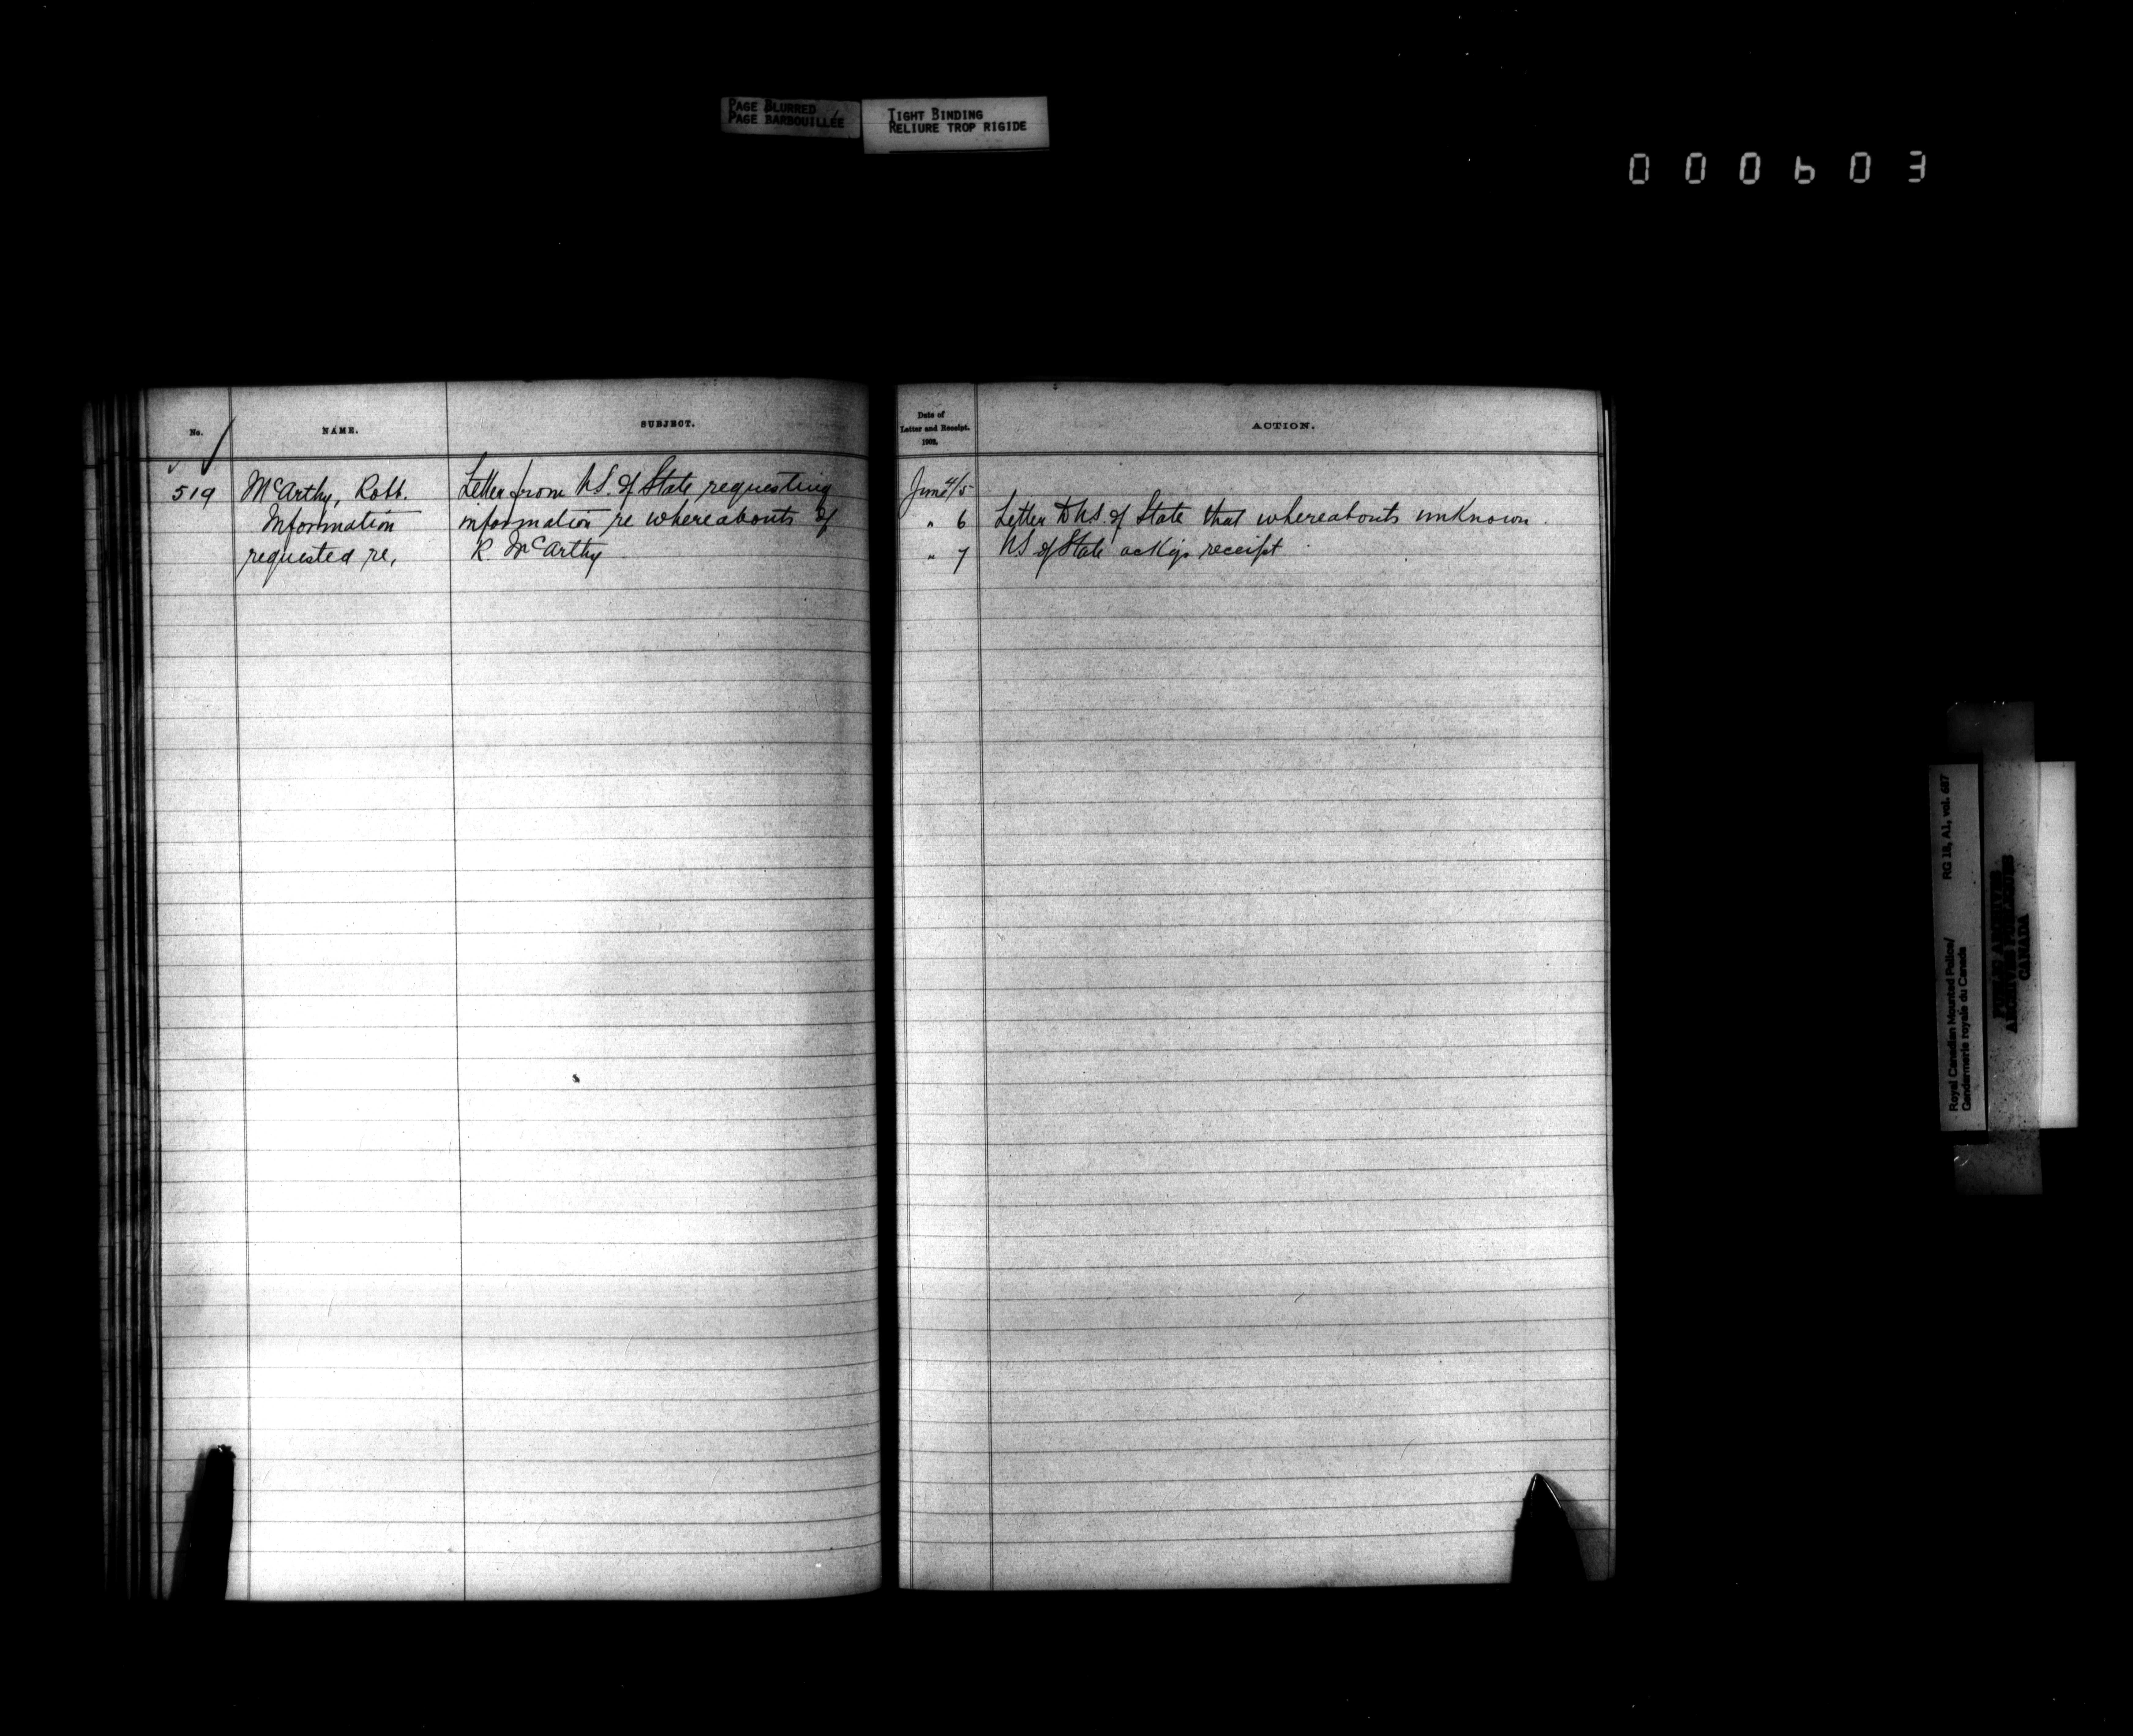 PAGE BLURRED
PAGE BARBOUILLÉE
TIGHT BINDING
RELIURE TROP RIGIDE
000603
No.
NAME.
SUBJECT.
519
McArthy, Robt.
Information
requested re,
Letter from U.S. of State requesting
information re whereabouts of
R. McArthy
Date of
Letter and Receipt.
1902.
ACTION.
June 4/5
" 6 Letter to U.S. of State that whereabouts unknown.
" 7 U.S of State ackgs receipt
Royal Canadian Mounted Police/
Gendarmerie royale du Canada
RG 18, A1, vol. 687
ARCHIVES
CANADA